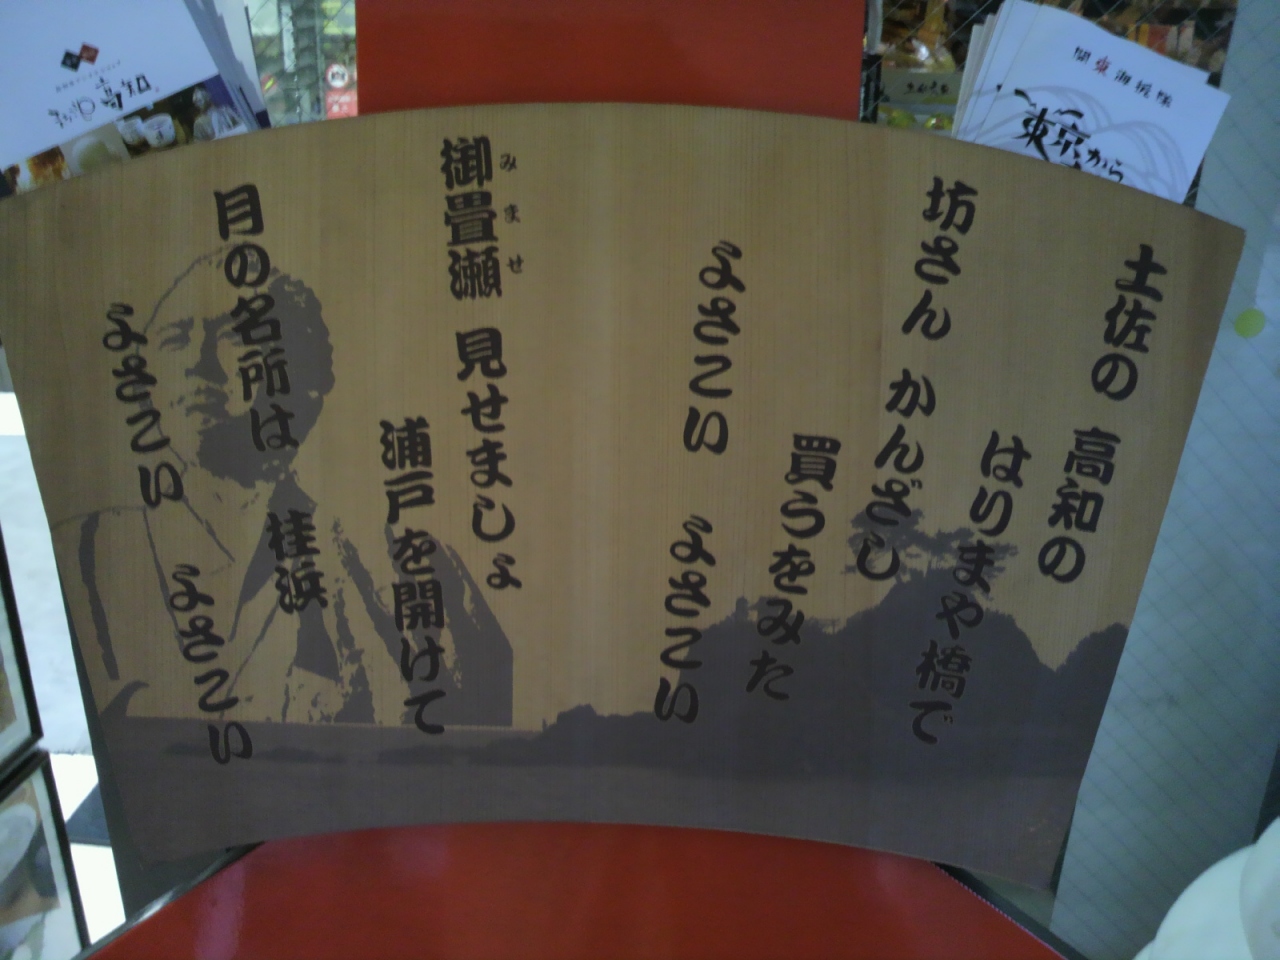 土佐の 高知の
はりまや橋で
坊さん かんざし
買うをみた
よさこい よさこい
御畳瀬 見せましょ
みませ
浦戸を開けて
月の名所は 桂浜
よさこい よさこい
高知
関東御援隊
東京から